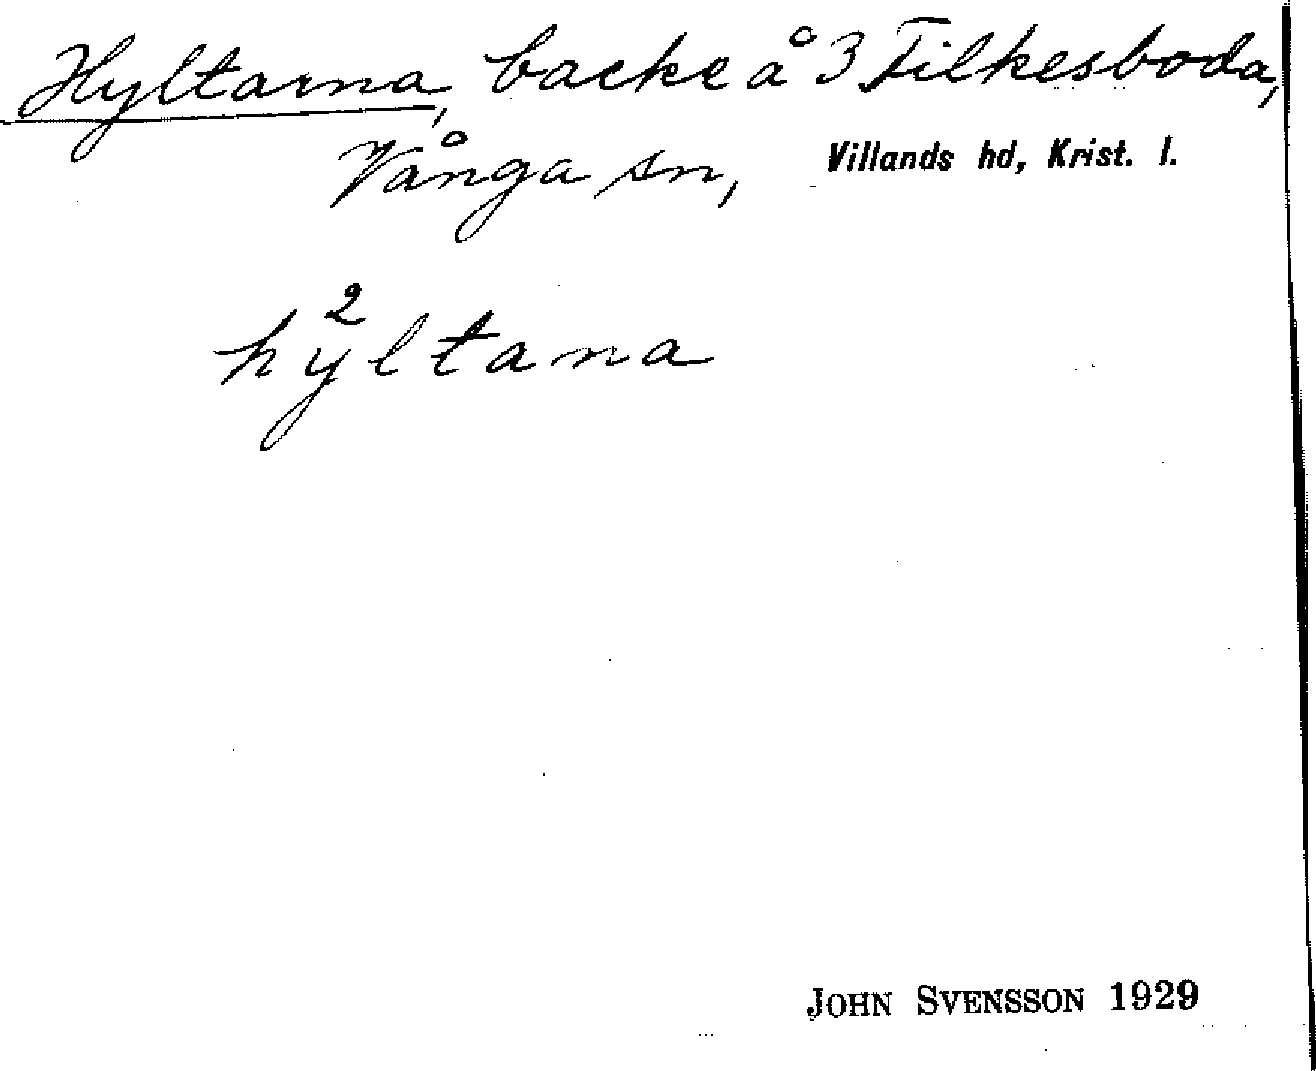 Hyltarna, backe å 3 Tilkesboda,
Vånga sn, Villands hd, Krist. l.
hy²ltana
JOHN SVENSSON 1929